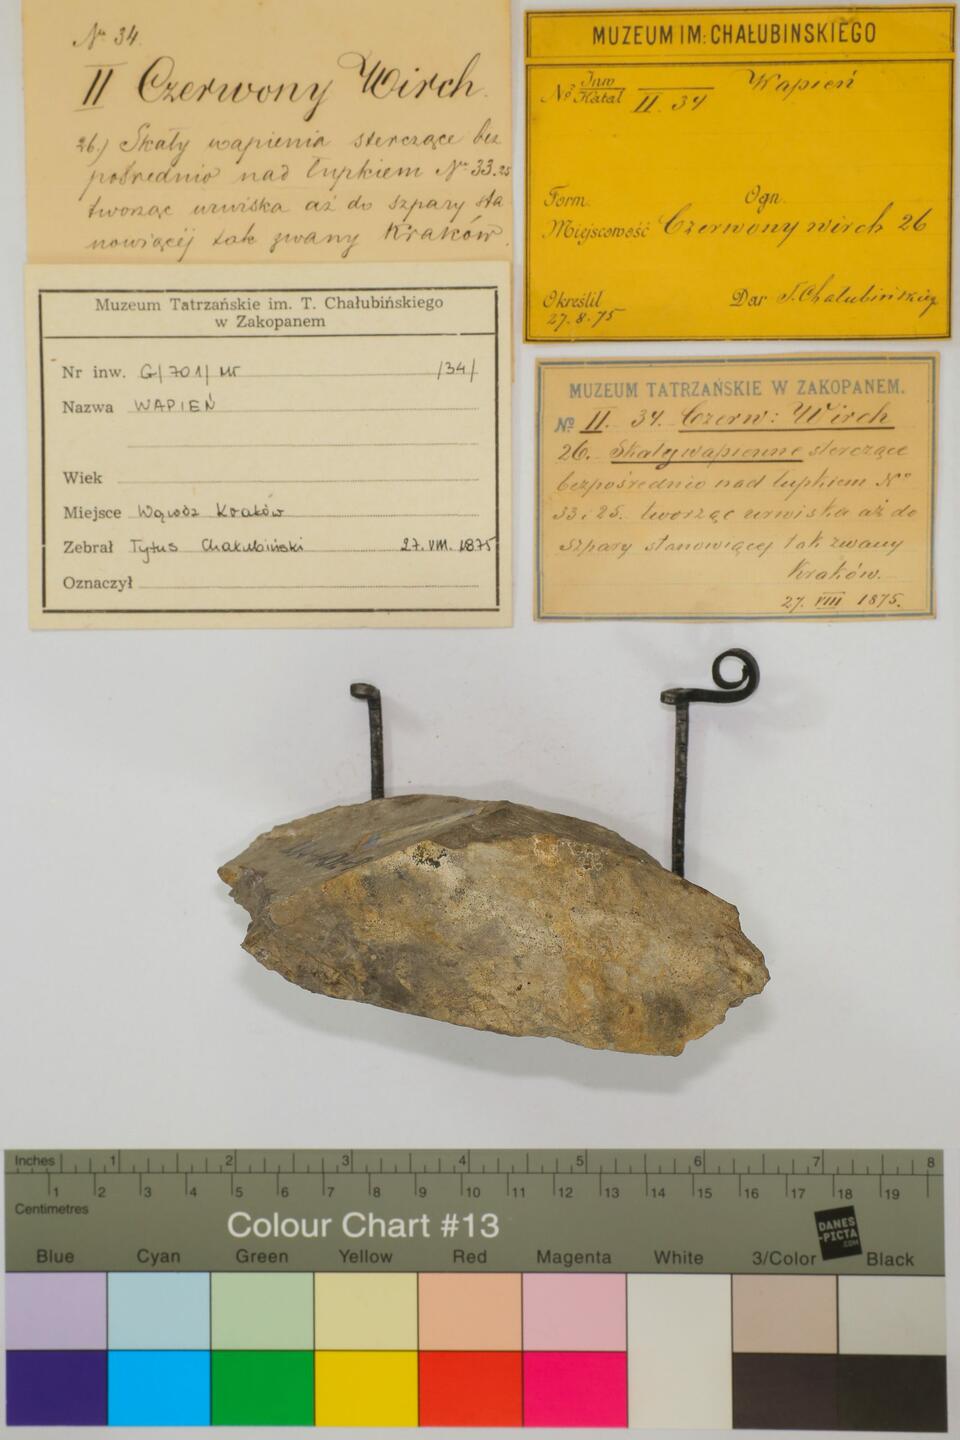 Nr 34.
II Czerwony Wirch.
26.) Skały wapienia sterczące bez
pośrednio nad łupkiem Nr 33.25
tworząc urwiska aż do szpary sta
nowiącéj tak zwany Kraków.
MUZEUM IM: CHAŁUBINSKIEGO
No Inw Katal II. 34 Wapień
Form. Ogn.
Miejscowość Czerwony wirch 26
Określił Dar T. Chałubińskieg
27.8.75
Muzeum Tatrzańskie im. T. Chałubińskiego
w Zakopanem
Nr inw. G/701/M /34/
Nazwa WAPIEŃ
Wiek
Miejsce Wąwóz Kraków
Zebrał Tytus Chałubiński 27.VIII.1875
Oznaczył
MUZEUM TATRZAŃSKIE W ZAKOPANEM.
No II. 34. Czerw: Wirch
26. Skały wapienne sterczące
bezpośrednio nad łupkiem No
33 i 25. tworząc urwiska aż do
szpary stanowiącej tak zwany
Kraków.
27. VIII 1875.
Inches 1 2 3 4 5 6 7 8
1 2 3 4 5 6 7 8 9 10 11 12 13 14 15 16 17 18 19
Centimetres
Colour Chart #13
DANES
-PICTA
.COM
Blue Cyan Green Yellow Red Magenta White 3/Color Black